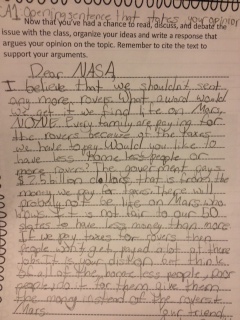 A1 opening sentence that states your opinion
Now that you've had a chance to read, discuss, and debate the
issue with the class, organize your ideas and write a response that
argues your opinion on the topic. Remember to cite the text to
support your arguments.
Dear NASA,
I believe that we shouldnt sent
any more rovers. What award would
we get if we find life on Mars,
NONE. Every turn are paying for
the rovers because of the taxes
we have to pay. Would you like to
have less homeless people or
more rovers? The government pays
$ 2.5 billion dollars that is from the
money we pay for taxes. There will
probably not be life on Mars. who
It is not fair to our 50
states to have less money than more
If we pay taxes for rovers then
people wont get payed alot at there
jobs. It is your dicision but think
of all of the homeless people, poor
people, do it for them give them
the money instead of the rovers
Mars
your friend,